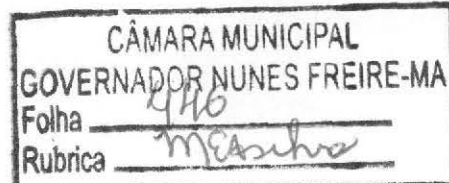 CÂMARA MUNICIPAL
GOVERNADOR NUNES FREIRE-MA
Folha 446
Rubrica